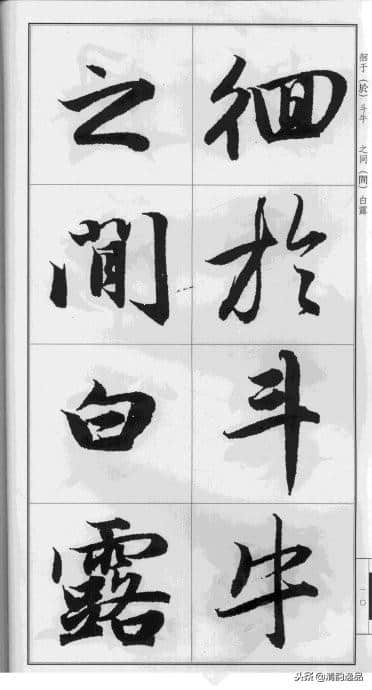 徊于（於）斗牛　之间（間）白露
徊於斗牛
之間白露
一〇
头条@清韵逸品